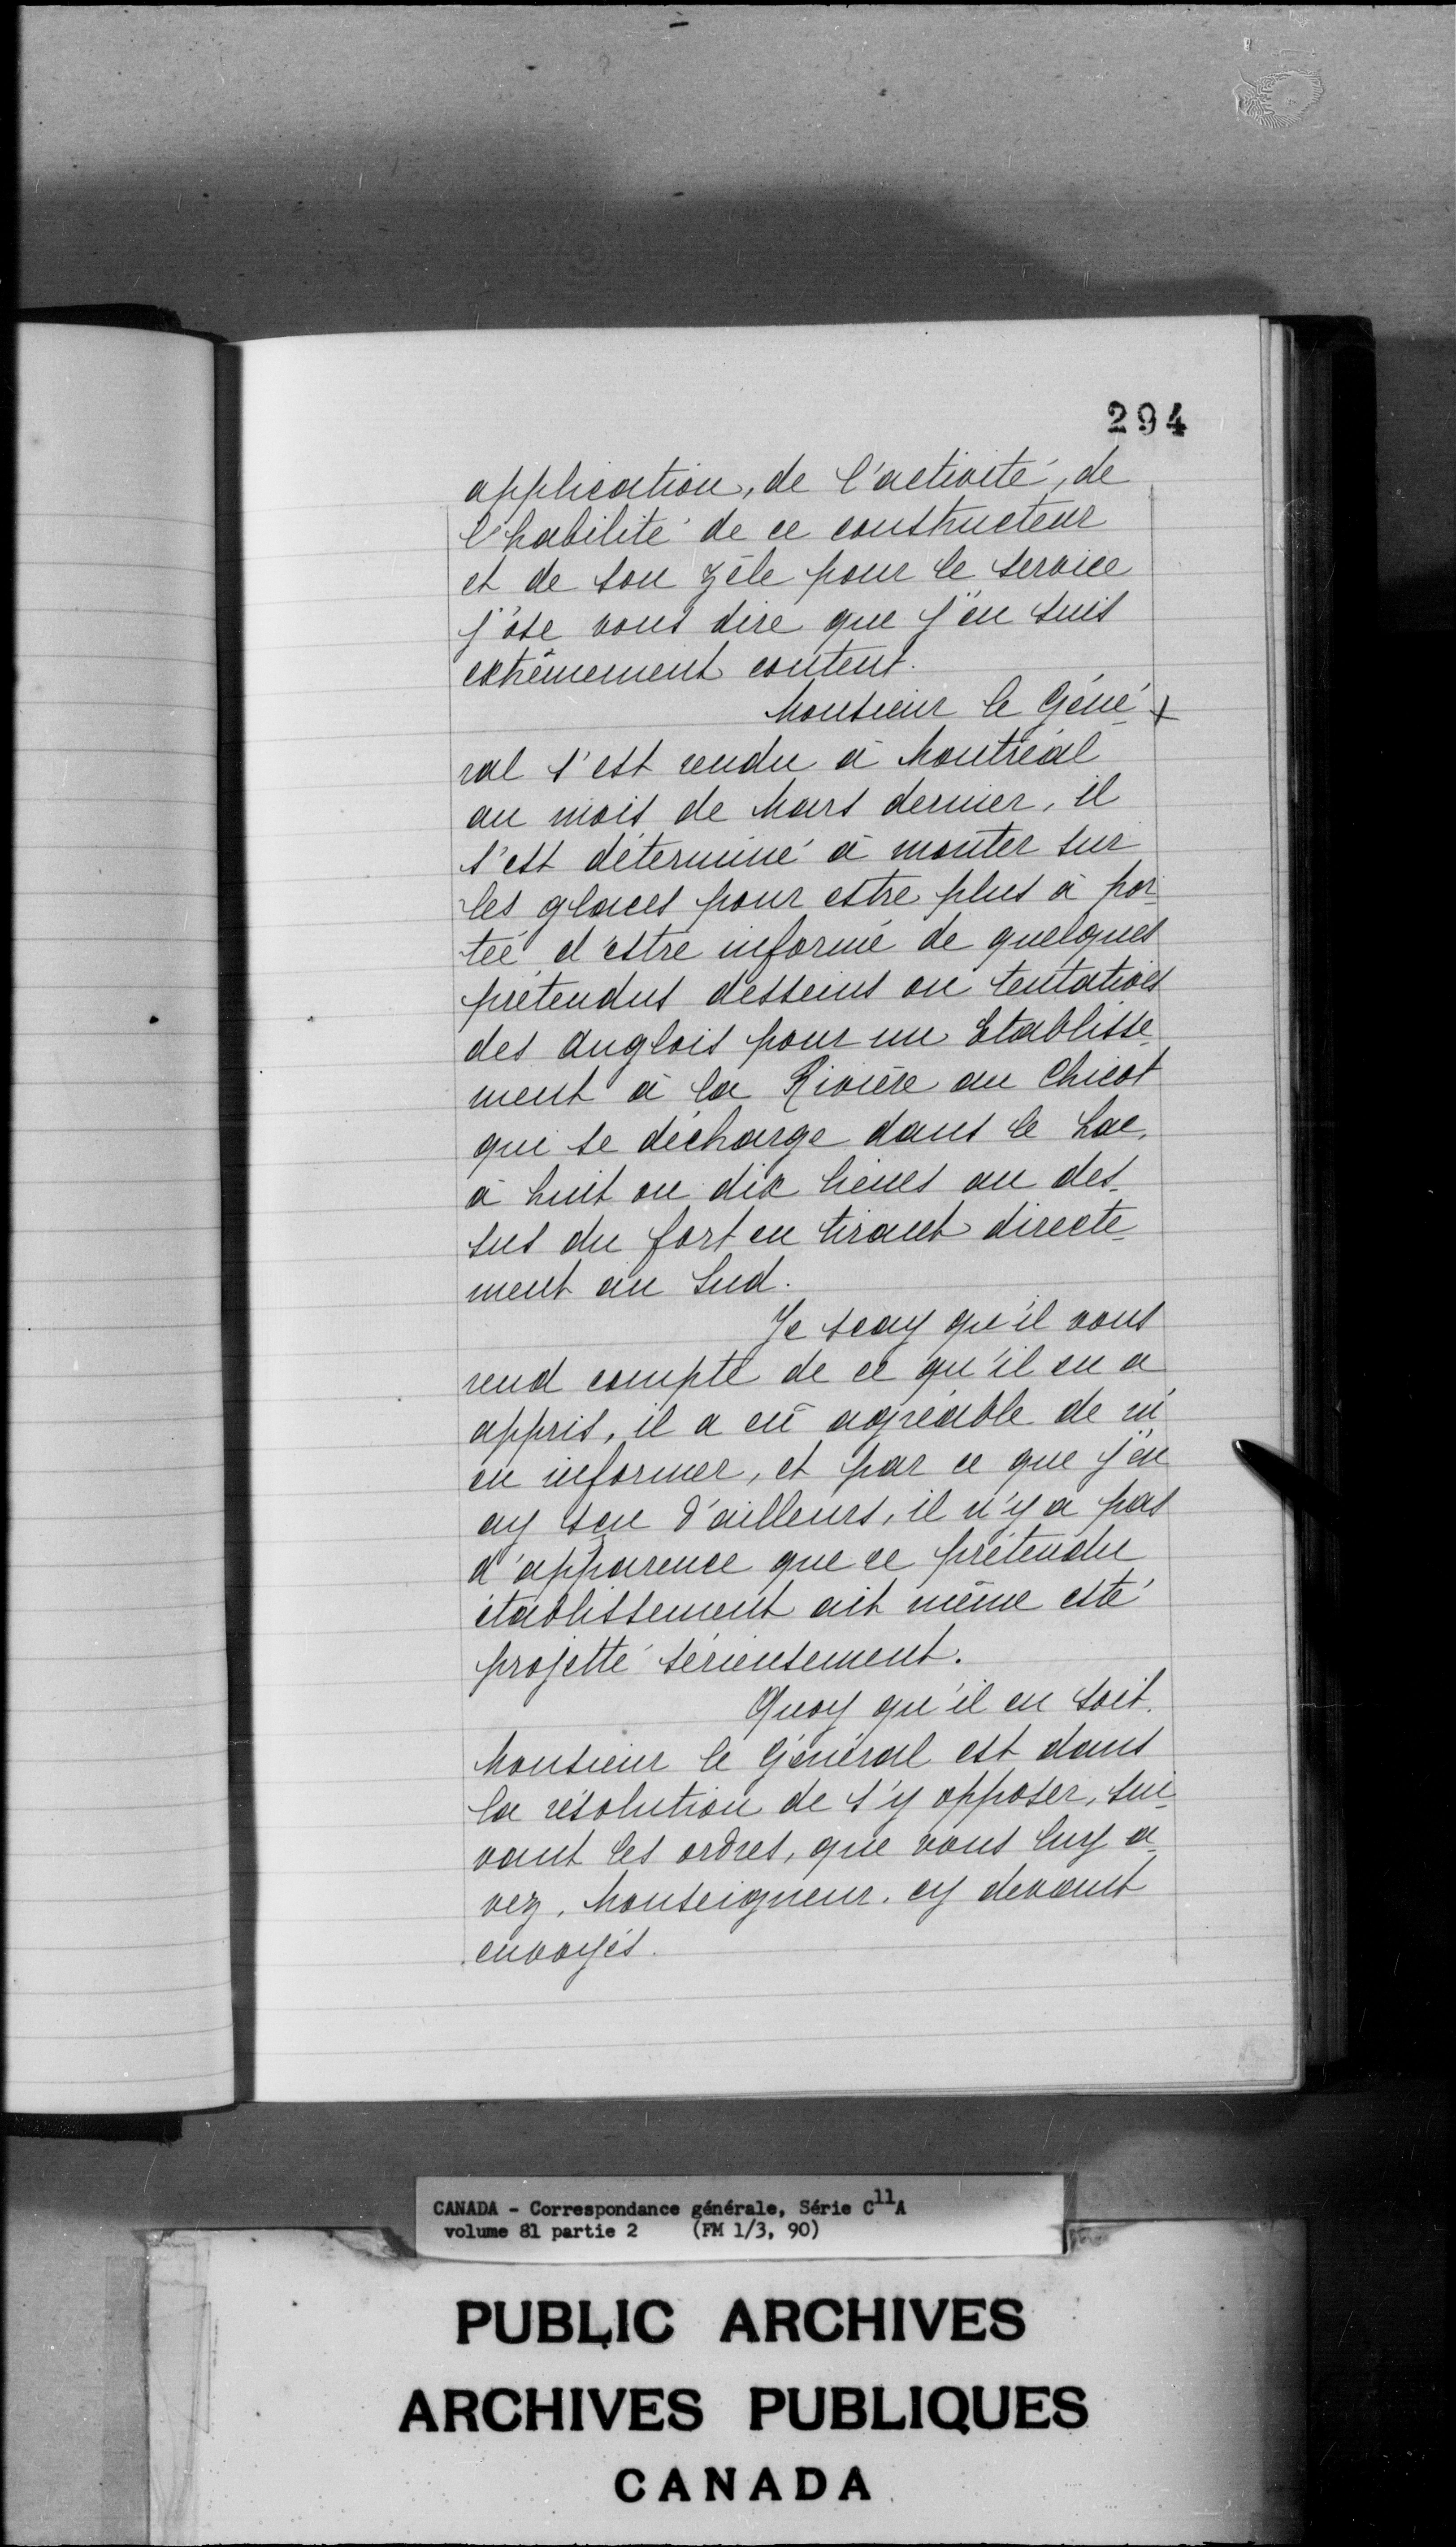 294
application, de l'activité, de
l'habilité de ce constructeur
et de son zèle pour le service
j'ose vous dire que j'en suis
extrêmement content.
Monsieur le Géné-
ral s'est rendu à Montréal
au mois de Mars dernier, il
s'est déterminé à monter sur
les glaces pour estre plus à por-
teé d'estre informé de quelques
prétendus desseins ou tentatives
des anglois pour un Etablisse-
ment à la Rivière au Chicot
qui se décharge dans le Lac,
à huit ou dix lieues au des-
sus du fort en tirant directe-
ment au Sud.
Je scay qu'il vous
rend compte de ce qu'il en a
appris, il a eû agréable de m'
en informer, et par ce que j'en
ay sçu d'ailleurs, il n'y a pas
d'apparence que ce prétendu
établissement ait même esté
projetté sérieusement.
Quoy qu'il en soit.
Monsieur le Général est dans
la résolution de s'y opposer, sui-
vant les ordres, que vous luy a-
vez, Monseigneur, cy devant
envoyés.
CANADA - Correspondance générale, Série C11A
volume 81 partie 2 (FM 1/3, 90)
PUBLIC ARCHIVES
ARCHIVES PUBLIQUES
CANADA